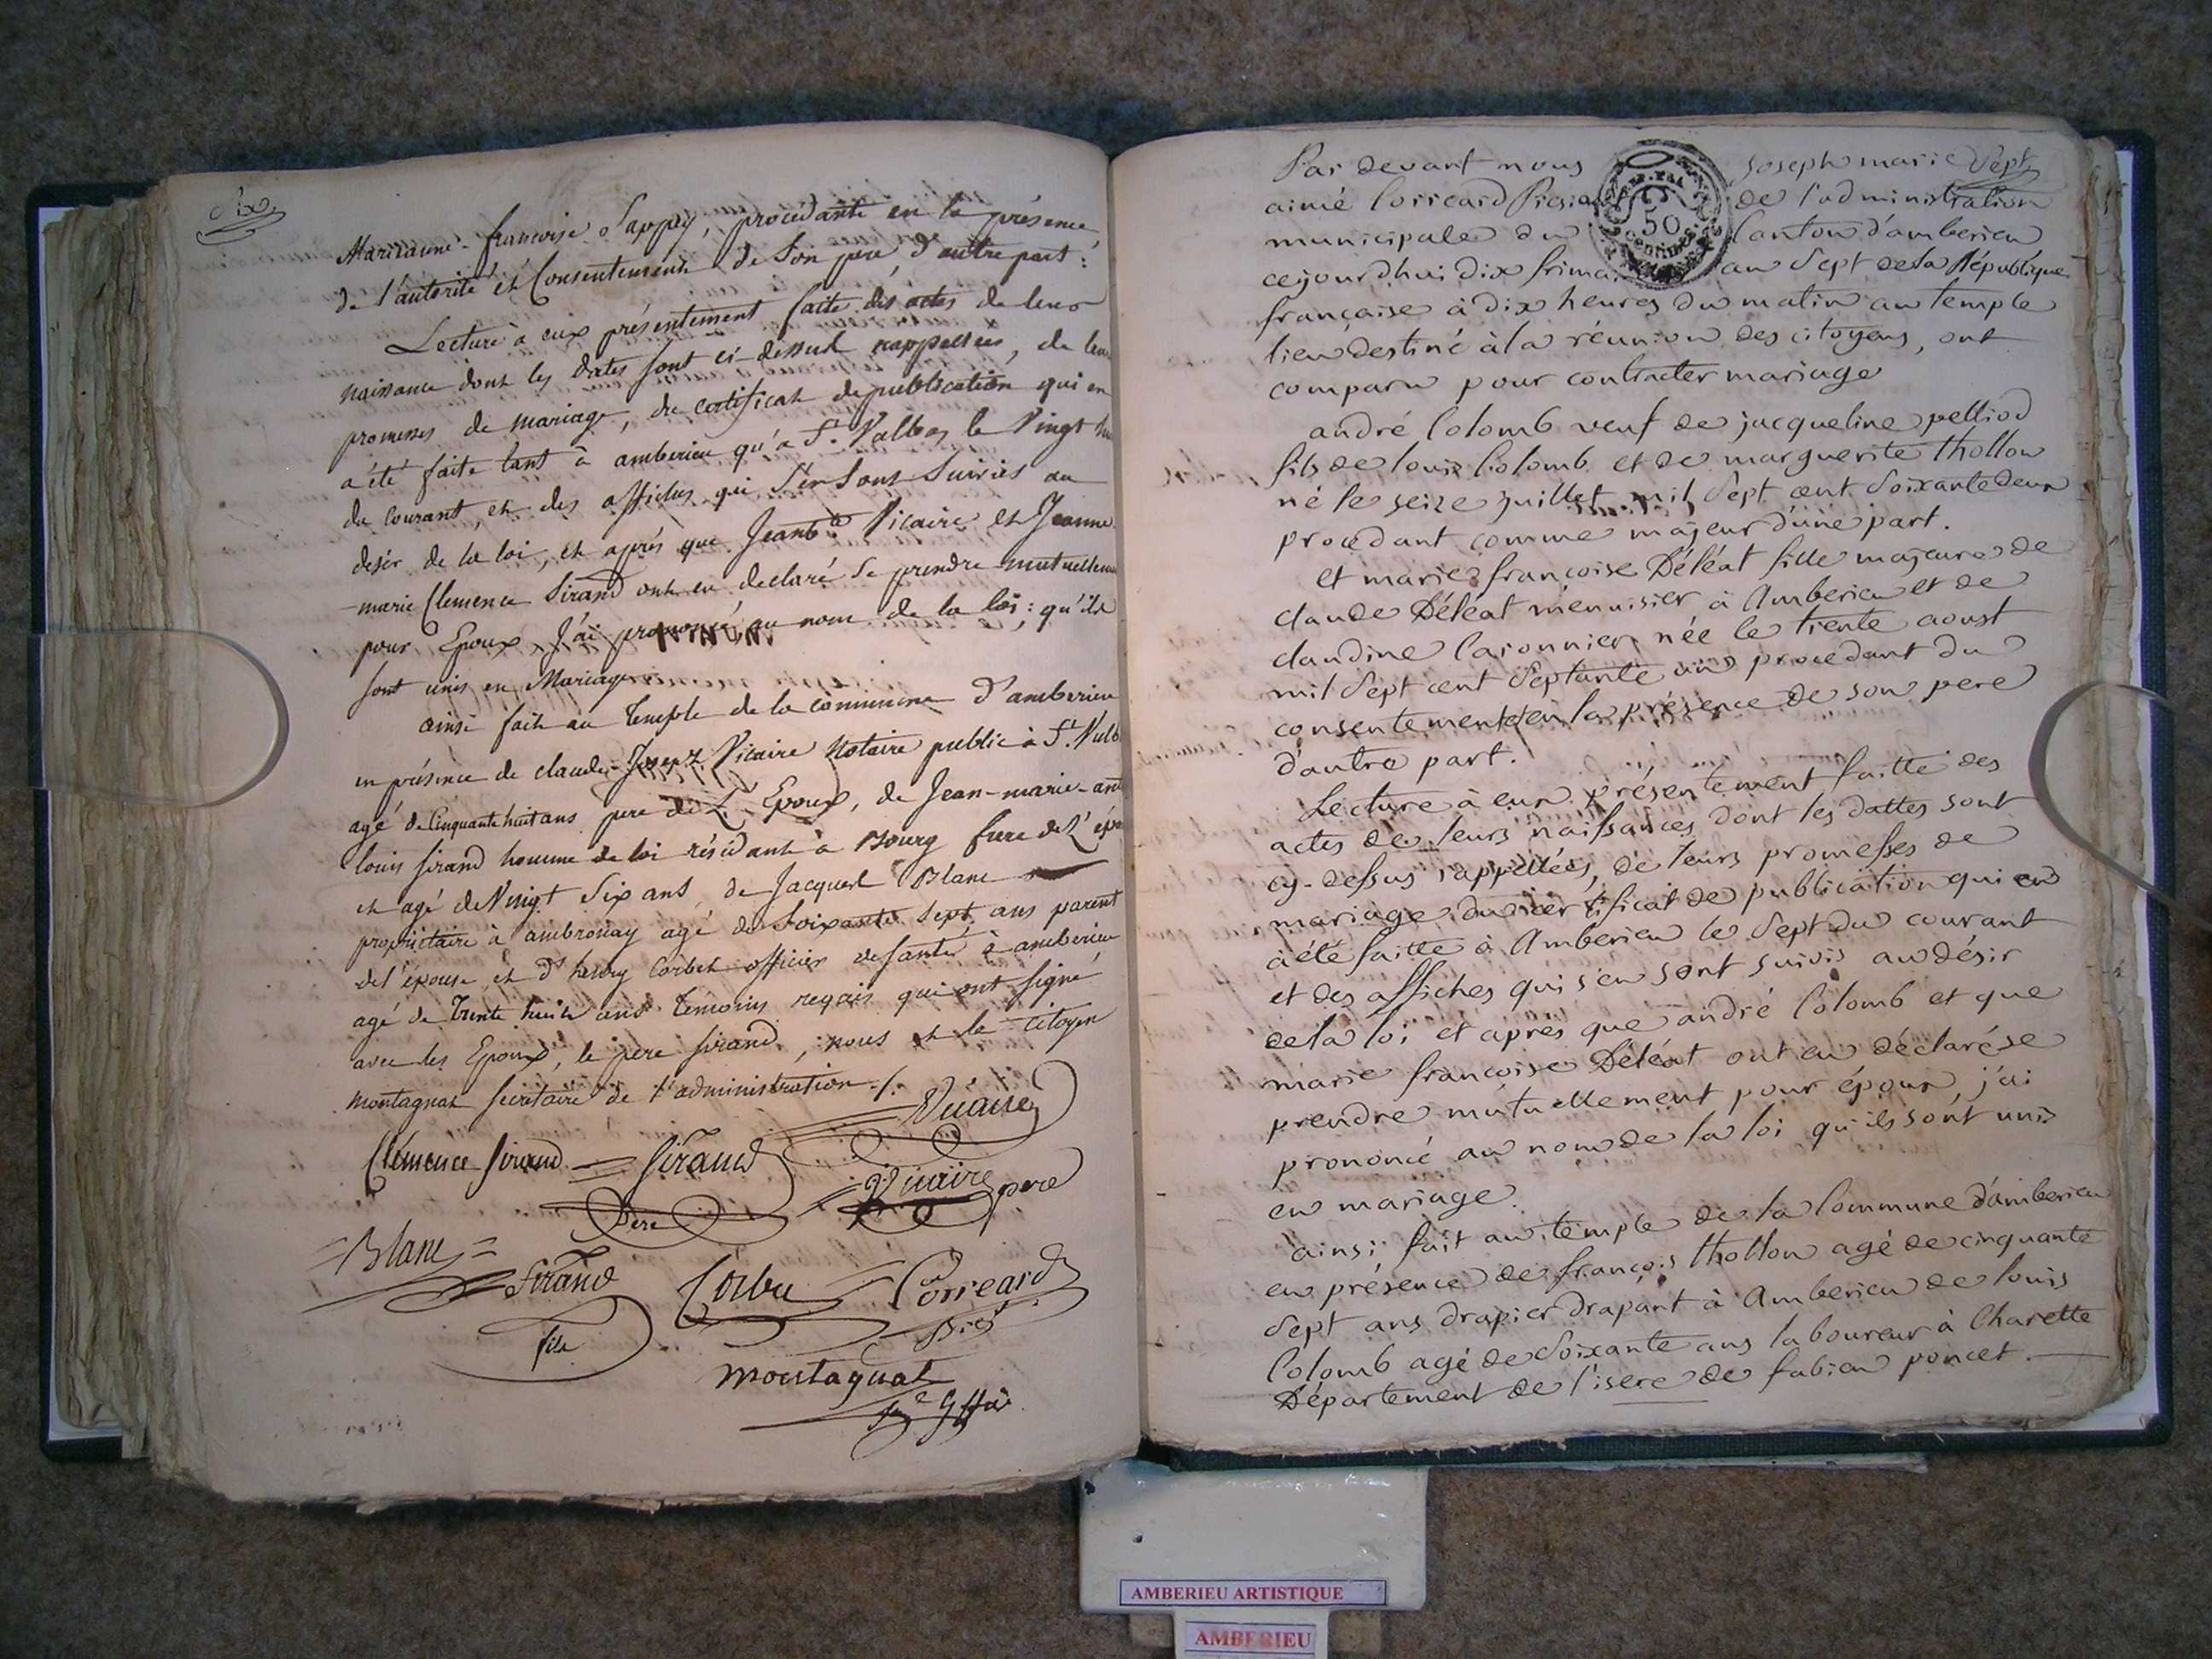 Six
Marieanne-francoise Sappey, procedante en la présence
de l'autorité et Consentement de Son pere, d'autre part:
Lecture à eux présentement faite des actes de leur
naissance dont les dates sont ci-dessus rappellées, de leur
promesses de mariage, du certificat de publication qui en
a été faite tant à amberieu qu'a St. Valbas le Vingt
du courant, et des affiches qui S'en Sont Suivies au
desir de la loi, et aprés que Jeanbte Vicaire et Jeanne
-marie Clemence Sirand ont eu declaré Se prendre mutuelleme
pour Epoux, J'ai prononcé au nom de la loi: qu'ils
sont unis en Mariage
ainsi fait au Temple de la commune d'amberieu
en présence de claude-Joseph Vicaire Notaire public à St. Vulb
agé de Cinquante huit ans pere de L'Epoux, de Jean-marie-ant
louis Sirand homme de loi résidant à Bourg frere de L'épo
et agé de Vingt Six ans, de Jacques Blanc
propriétaire à ambronay agé de Soixante Sept ans parent
de l'épouse, et d'henry Corbet officier de santé à amberieu
agé de Trente huit ans Temoins requis qui ont signé
avec les Epoux, le pere Sirand, nous et le Citoyen
montagnat secrétaire de l'administration ./.
Vicaire
Clémence Sirand Sirand
Pere
Vicaire pere
Blanc
Sirand
fils
Corbet Corréard
Pdt
montagnat
Sept
Par devant nous Joseph marie
aimé Corréard Président de l'administration
REP. FRA
50
centimes
municipale du Canton d'amberieu
cejourd'hui dix frimaire an Sept de la République
française à dix heures du matin au temple
lieu destiné à la réunion des citoyens, ont
comparu pour contracter mariage
andré Colomb veuf de jacqueline pelliod
fils de louis Colomb et de marguerite thollon
né le seize juillet mil Sept cent Soixante deux
procédant comme majeur d'une part.
et marie françoise Déléat fille majeure de
claude Déléat menuisier à Amberieu et de
claudine laronnier née le trente aoust
mil Sept cent Septante un procedant du
consentement et en la présence de son pere
d'autre part.
Lecture à eux présentement faitte des
actes de leurs naissances dont les dattes sont
cy-dessus rappellées, de leurs promesses de
mariage du certificat de publication qui en
à été faitte à Amberieu le Sept du courant
et des affiches qui s'en sont suivis au désir
de la loi et aprés que andré Colomb et que
marie françoise Déléat ont eu déclaré se
prendre mutuellement pour époux j'ai
prononcé au nom de la loi qu'ils sont unis
en mariage.
ainsi fait au temple de la Commune d'amberieu
en présence de françois thollon agé de cinquante
Sept ans drapier drapant à Amberieu de louis
Colomb agé de Soixante ans laboureur à Charette
Département de l'isere de fabien poncet.
AMBERIEU ARTISTIQUE
AMBERIEU